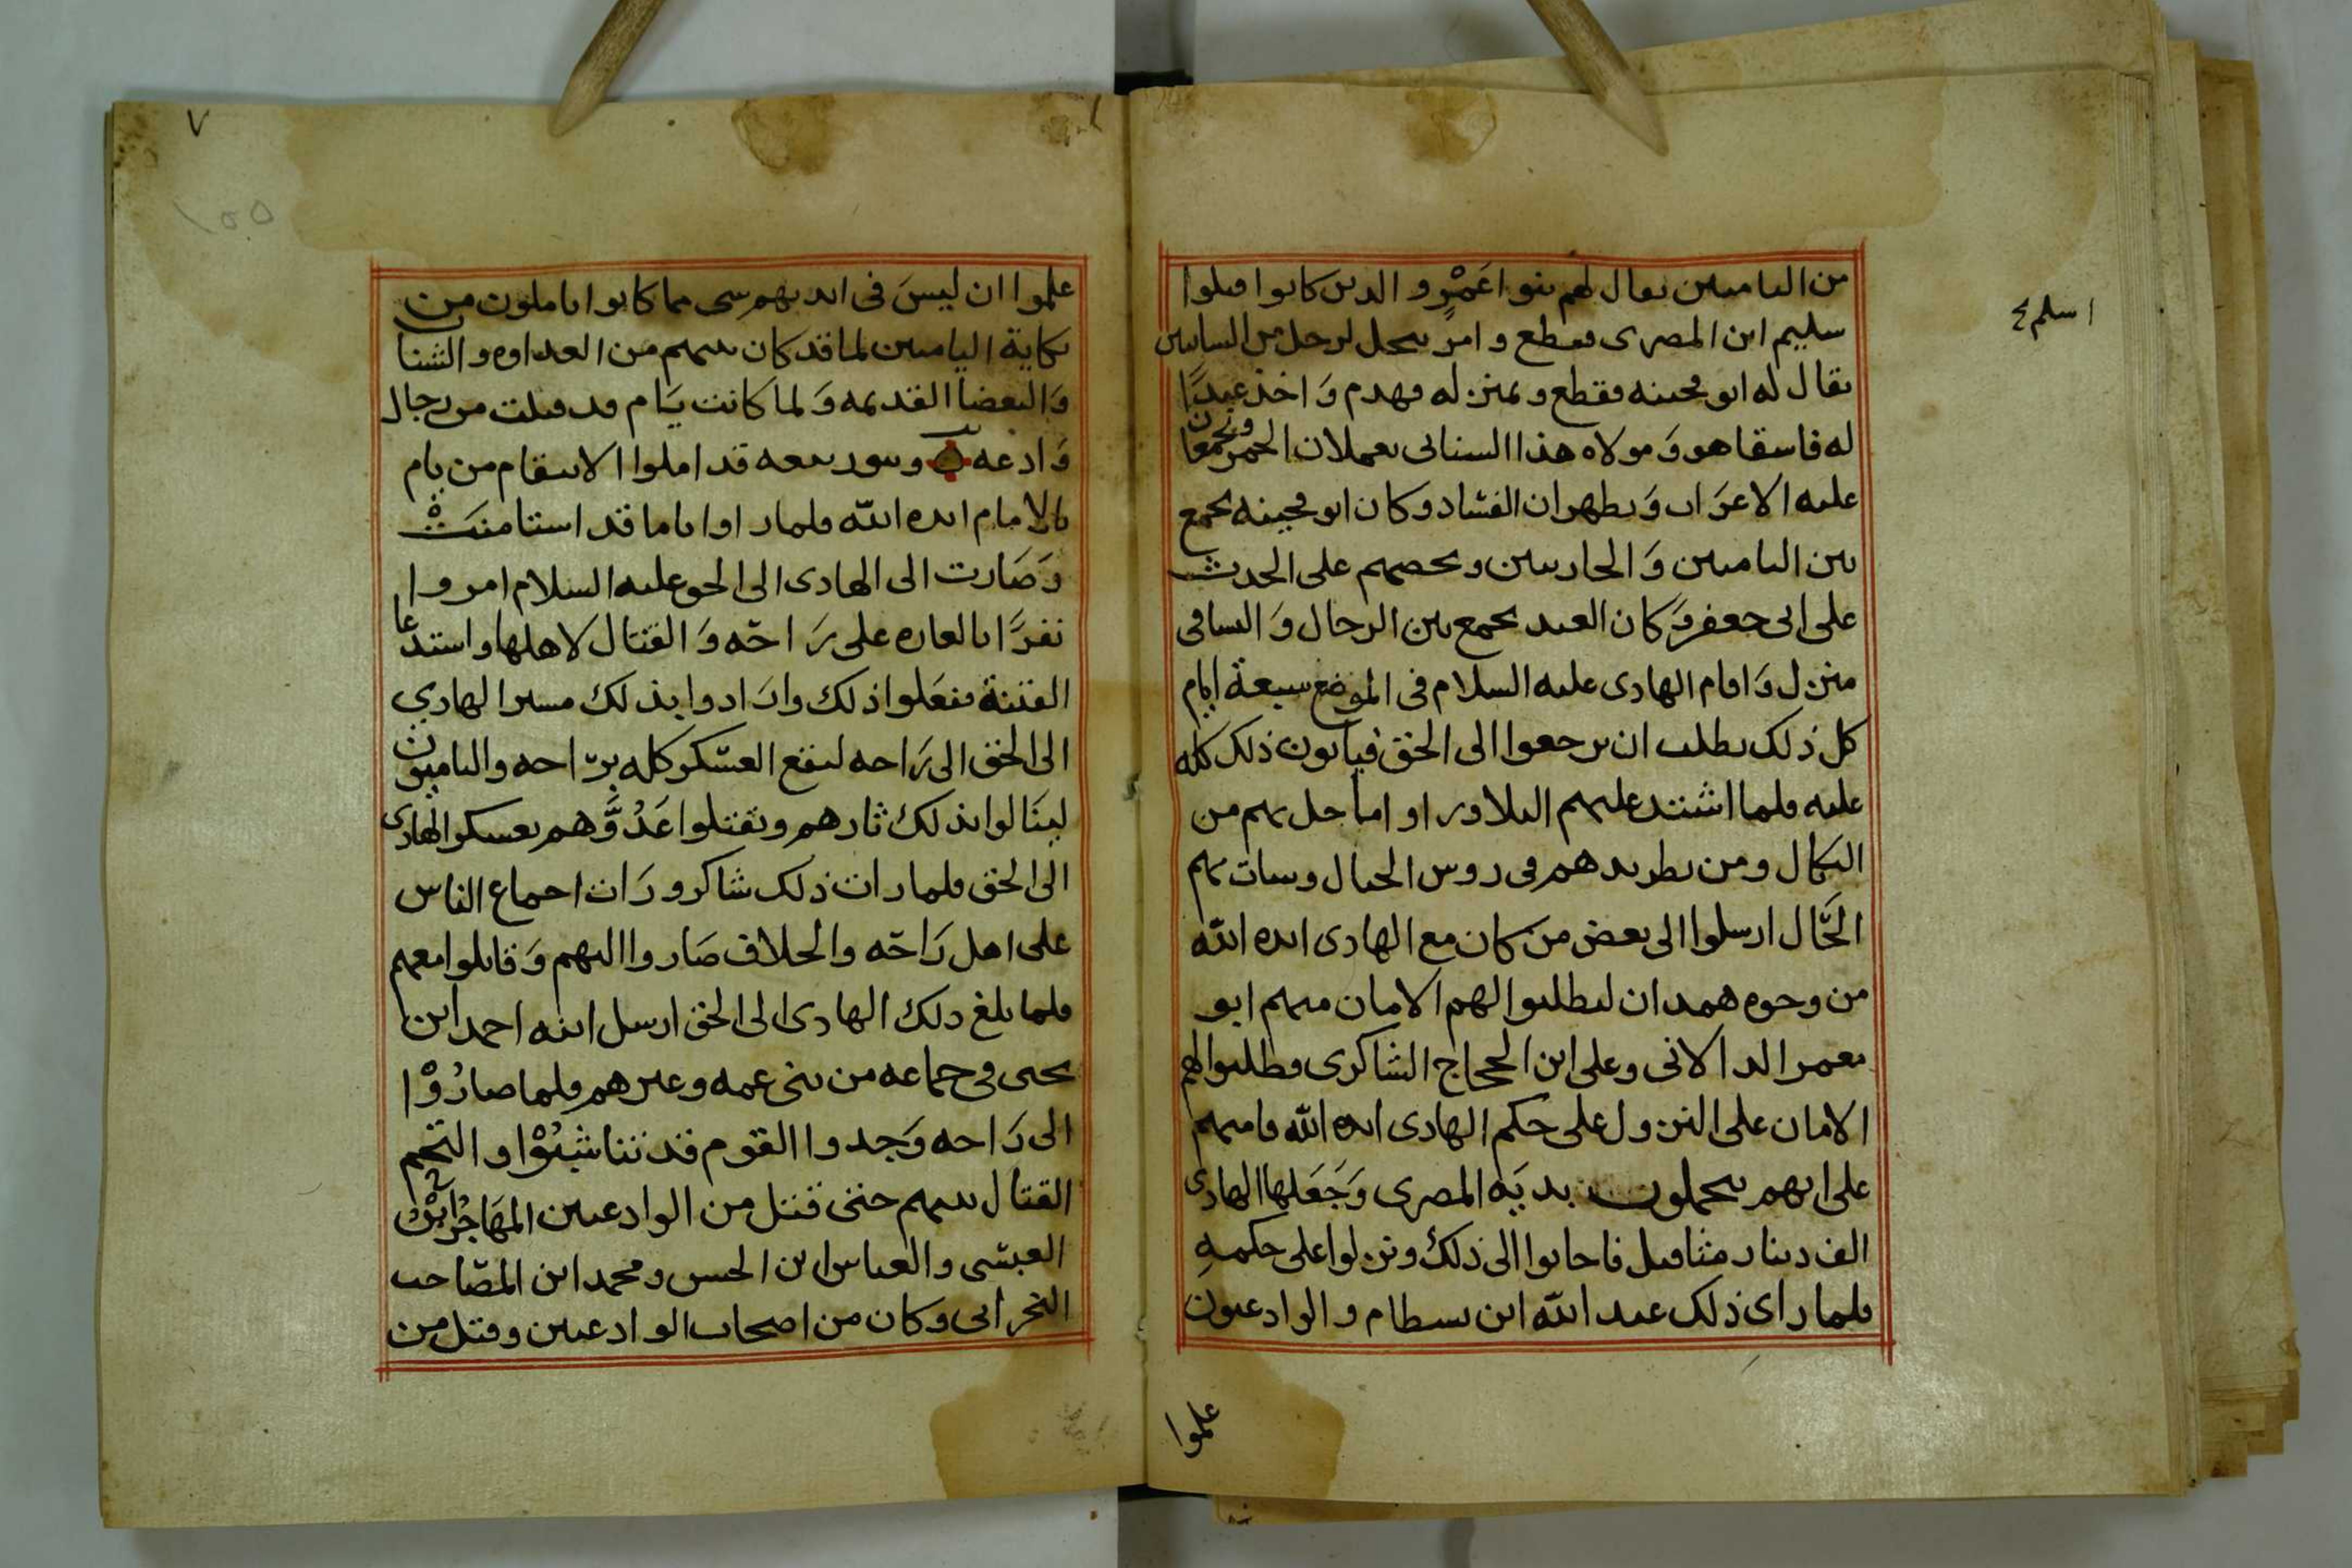 من الياميين يقال لهم بنوا عَمْرٍو والذين كانوا قتلوا
سليم ابن المصرى فقطع وامر بنخل لرجل من
يقال له ابو محجنه فقطع وبمنزله فهدم وَاخذ عبدًا
له فاسقا هو وَمولاه هذا يعملان الخمر ويجمعان
عليه الاعرَاب وَيظهران الفساد وكان ابو محجنه يجمع
بين الياميين وَالحارثيين ويحضهم على الحدث
على ابى جعفر وَكان العبد يجمع بين الرجال وَالنسا فى
منزل وَاقام الهادى عليه السلام فى الموضع سبعة ايام
كل ذلك يطلب ان يرجعوا الى الحق فيابون ذلك كله
عليه فلما اشتد عليهم البلا وراوا ما حل بهم من
النكال ومن تطريدهم فى روس الجبال وسات بهم
الحَال ارسلوا الى بعض من كان مع الهادى ايده الله
من وجوه همدان ليطلبوا لهم الامان منهم ابو
معمر الدالانى وعلى ابن الحجاج الشاكرى فطلبوا لهم
الامان على النزول على حكم الهادى ايده الله فامنهم
على انهم يحملون بديَه المصرى وَجَعَلها الهادى
الف دينار مثاقيل فاجابوا الى ذلك ونزلوا على حكمهِ
فلما راى ذلك عبد الله ابن بسطام والوادعيون
علموا
اسلم
٧
١٥٥
علموا ان ليسَ فى ايديهم شى مما كانوا ياملون من
نكاية الياميين لما قد كان بينهم من العداوه والشنان
وَالبغضا القديمه وَلما كانت يَام قد قتلت من رجال
وَادعه وبنو ربيعه قد املوا الانتقام من يام
بالامام ايده الله فلما راوا ياما قد استامنَتْ
وَصَارت الى الهادى الى الحق عليه السلام امروا
نفرًا بالغاره على رَاحَه وَالقتال لاهلها واستدعا
الفتنة ففعَلوا ذلك وارَادوا بذلك مسير الهادي
الى الحق الى رَاحه ليقع العسكر كله براحه والياميون
لينَالوا بذلك ثارهم ويقتلوا عَدُوَّهم بعسكر الهادى
الى الحق فلما رات ذلك شاكر ورَات اجماع الناس
على اهل رَاحَه والخلاف صَاروا اليهم وَقاتلوا معهم
فلما بلغ ذلك الهادى الى الحق ارسل ابنه احمد ابن
يحيى فى جماعه من بنى عمه وغيرهم فلما صارُوْا
الى رَاحه وَجدوا القوم قد تناشبُوْا والتحم
القتال بينهم حتى قتل من الوادعيين المهَاجُر ابْن
العبشى والعباس ابن الحسن ومحمد ابن المصَاحب
النجرانى وكان من اصحاب الوادعيين وقتل من